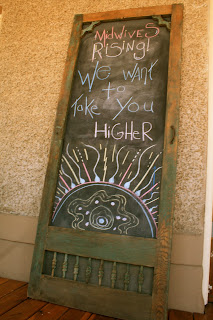 MIDWIVES
RISING!
We WANT
to
TAKE YOU
HIGHER